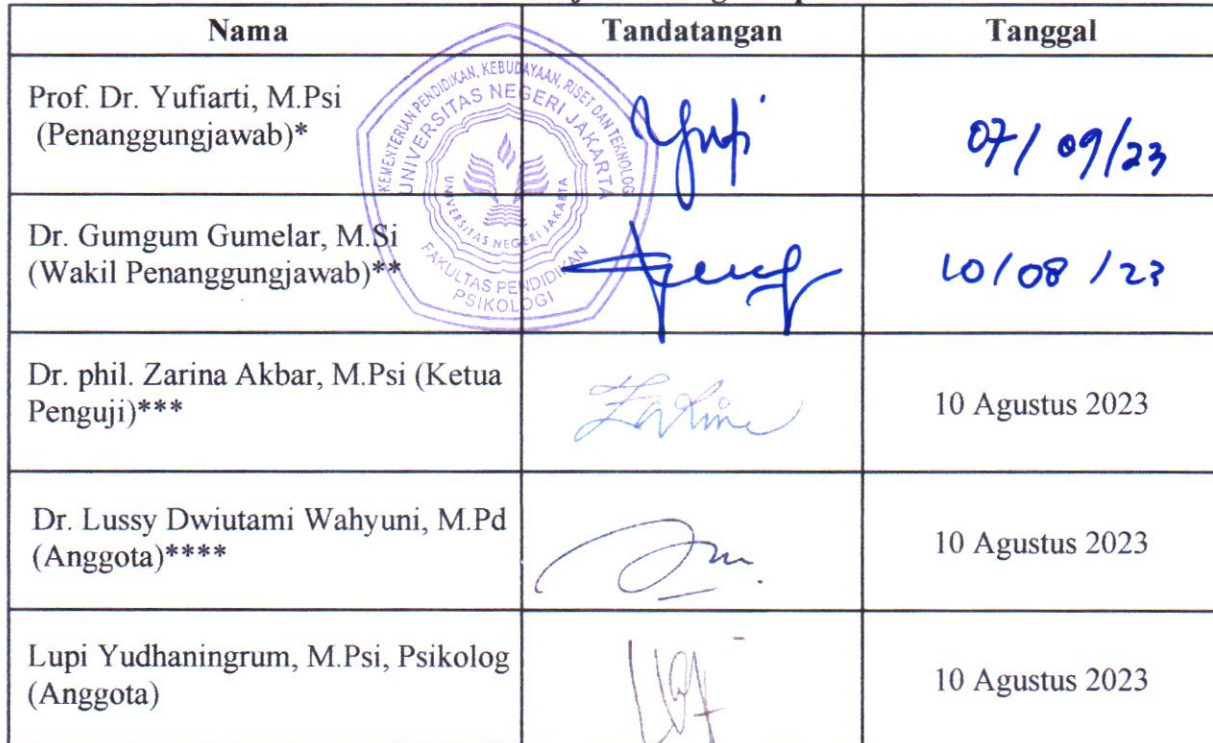 Nama Tandatangan Tanggal
Prof. Dr. Yufiarti, M.Psi
(Penanggungjawab)*
07/09/23
Dr. Gumgum Gumelar, M.Si
(Wakil Penanggungjawab)**
10/08/23
Dr. phil. Zarina Akbar, M.Psi (Ketua
Penguji)***
10 Agustus 2023
Dr. Lussy Dwiutami Wahyuni, M.Pd
(Anggota)****
10 Agustus 2023
Lupi Yudhaningrum, M.Psi, Psikolog
(Anggota)
10 Agustus 2023
KEMENTERIAN PENDIDIKAN, KEBUDAYAAN, RISET DAN TEKNOLOGI
UNIVERSITAS NEGERI JAKARTA
UNIVERSITAS NEGERI JAKARTA
FAKULTAS PENDIDIKAN
PSIKOLOGI